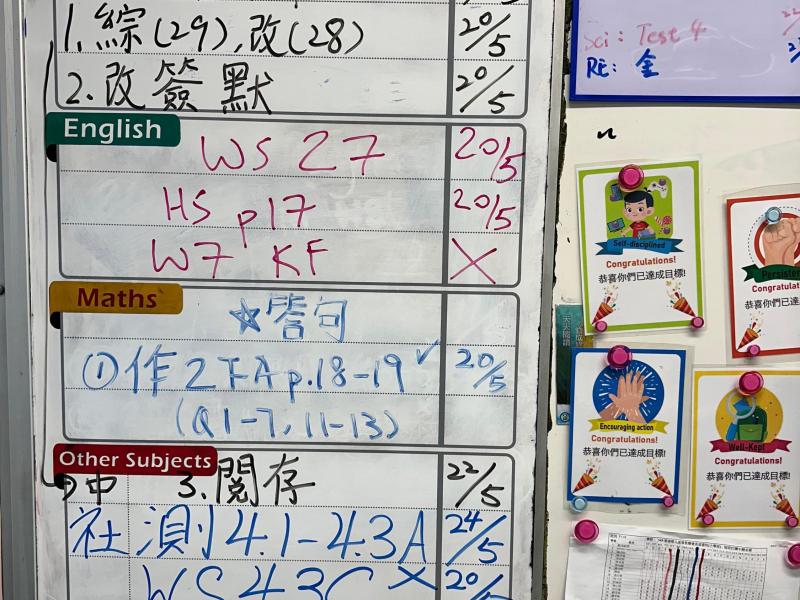 1. 綜(29), 改(28) 20/5
2. 改簽默 20/5
English
WS 27 20/5
HS p17 20/5
W7 KF X
Maths
☆答句
①作2下A p.18-19 ✓ 20/5
(Q1-7, 11-13)
Other Subjects
中 3. 閱存 22/5
社 測4.1-4.3A 24/5
WS4.3C X 20/
Sci: Test 4
RE: 金
Self-disciplined
Congratulations!
恭喜你們已達成目標!
Persisten
Congratulat
恭喜你們已達
Encouraging action
Congratulations!
恭喜你們已達成目標!
Well-Kept
Congratulations!
恭喜你們已達成目標!